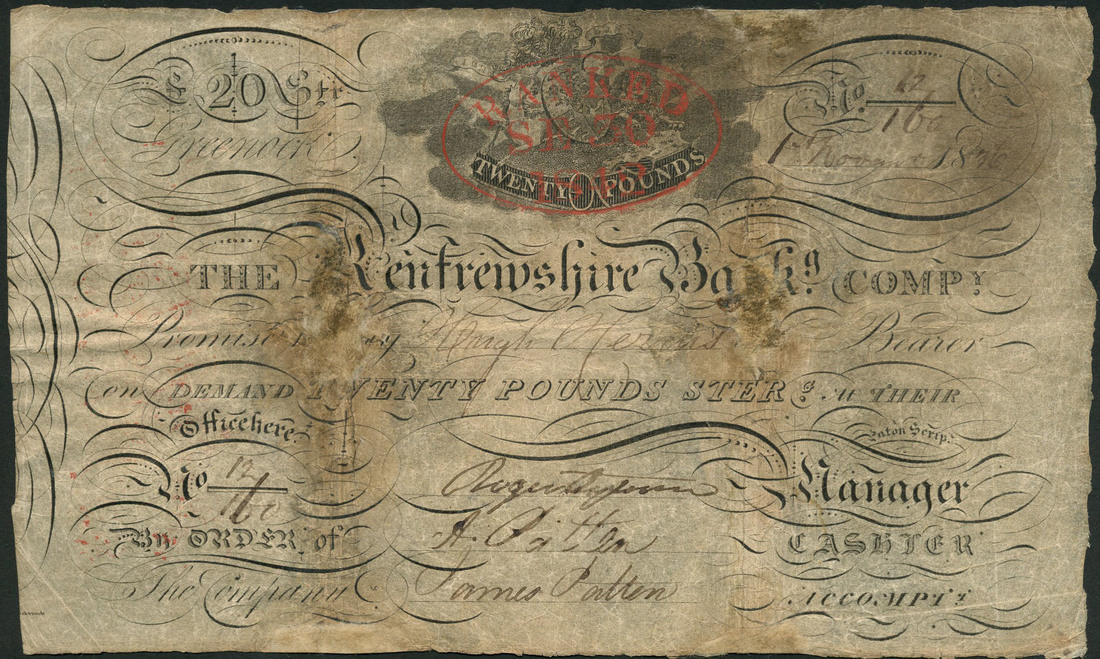 £ 20 Str
Greenock
BANKED
SR 30
TWENTY POUNDS
No 12/160
1 Novr 18
THE Renfrewshire Bankg. COMPY.
Promise to pay Hugh or Bearer
on DEMAND TWENTY POUNDS STERG. At THEIR
Office here
Eaton Scrip.
No 12/160
Manager
By ORDER of
A. Patten
CASHIER
The Company
James Patten
ACCOMPTT.